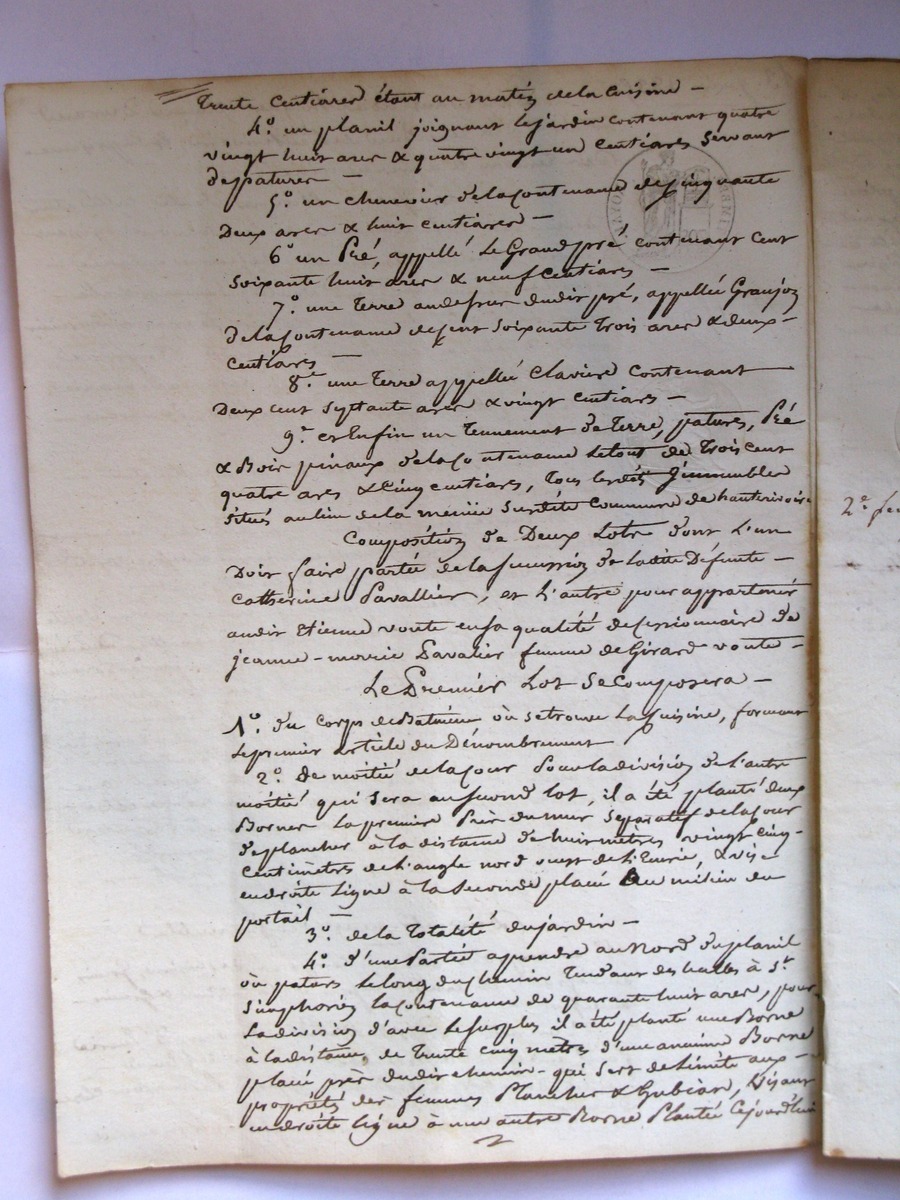 trente centiares étant au matin de la Cuisine –
4.° un planil joignant le jardin contenant quatre
vingt huit ares & quatre vingt un centiares servant
de patures –
5.° un chenevier de la contenance de cinquante
Deux ares & huit centiares –
6° un Pré, appellé Le Grand pré contenant cent
soixante huit ares & neuf Centiares –
7.° une Terre au dessus dudit pré, appellée
de la contenance de cent soixante trois ares & deux –
centiares –
8.° une Terre appellée Claviere contenant
Deux cent septante ares & vingt centiares –
9.° et Enfin un Tennement de Terre, patures, Pré
& Bois pinaux de la contenance le tout de Trois cent
quatre ares & Cinq centiares, Tous lesdits Jmmeubles
situés au lieu de la même susdite commune de hauterivoire
Composition de Deux Lots dont L'un
Doit faire partie de la succession de Ladite Défunte –
Catherine Pavallier, et L'autre pour appartenir
audit Etienne voute en sa qualité de cessionnaire de
jeanne – marie Pavalier femme de Girard voute –
Le Premier Lot Se Composera –
1.° du Corps de Batiment où se trouve La Cuisine, formant
le premier article du Dénombrement
2.° De moitié de la Cour Pour la division de l'autre
moitié qui sera au second lot, il a été planté deux
Bornes La premiere Près du mur séparatif de la Cour
de plancher à la distance de huit mètres vingt cinq –
Centimètres de l'angle nord ouest de l'Ecurie, & vise
en droite Ligne à la seconde placée au milieu du
portail –
3.° de la Totalité du jardin –
4.° d'une Partie a prendre au Nord du planil
ou patures Le long du chemin Tendant des halles à S.t
Simphorien la contenance de quarante huit ares, pour
La division d'avec le surplus il a été planté une Borne
à la distance de Trente cinq mètres d'une ancienne Borne
placée près dudit chemin – qui sert de Limite aux –
propriétés des femmes Plancher & Gubian, visant
en droite ligne à une autre Borne Plantée Cejourd'hui
2.e